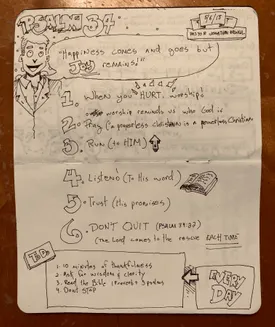 PSALM 34
"Happiness comes and goes but
Joy remains!"
1. When you HURT, worship!
worship reminds us who God is
2. Pray (a prayerless Christian is a powerless Christian
3. Run (to HIM)
4. Listen! (To His word)
5. Trust (His promises)
6. DON'T QUIT (PSALM 34:17)
(The Lord comes to the rescue EACH TIME
1. 10 minutes of thankfulness
2. Ask for wisdom & clarity
3. Read the Bible 1 Proverb 5 psalms
4. Dont STOP
EVERY
DAY